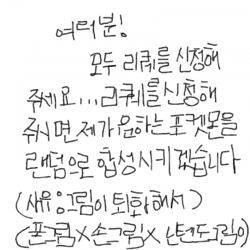 여러분!
모두 리퀘를 신청해
주세요...리퀘를 신청해
주시면 제가 원하는 포켓몬을
랜덤으로 합성시키겠습니다
(사유 그림이 퇴화해서)
(폰그림X손그림X